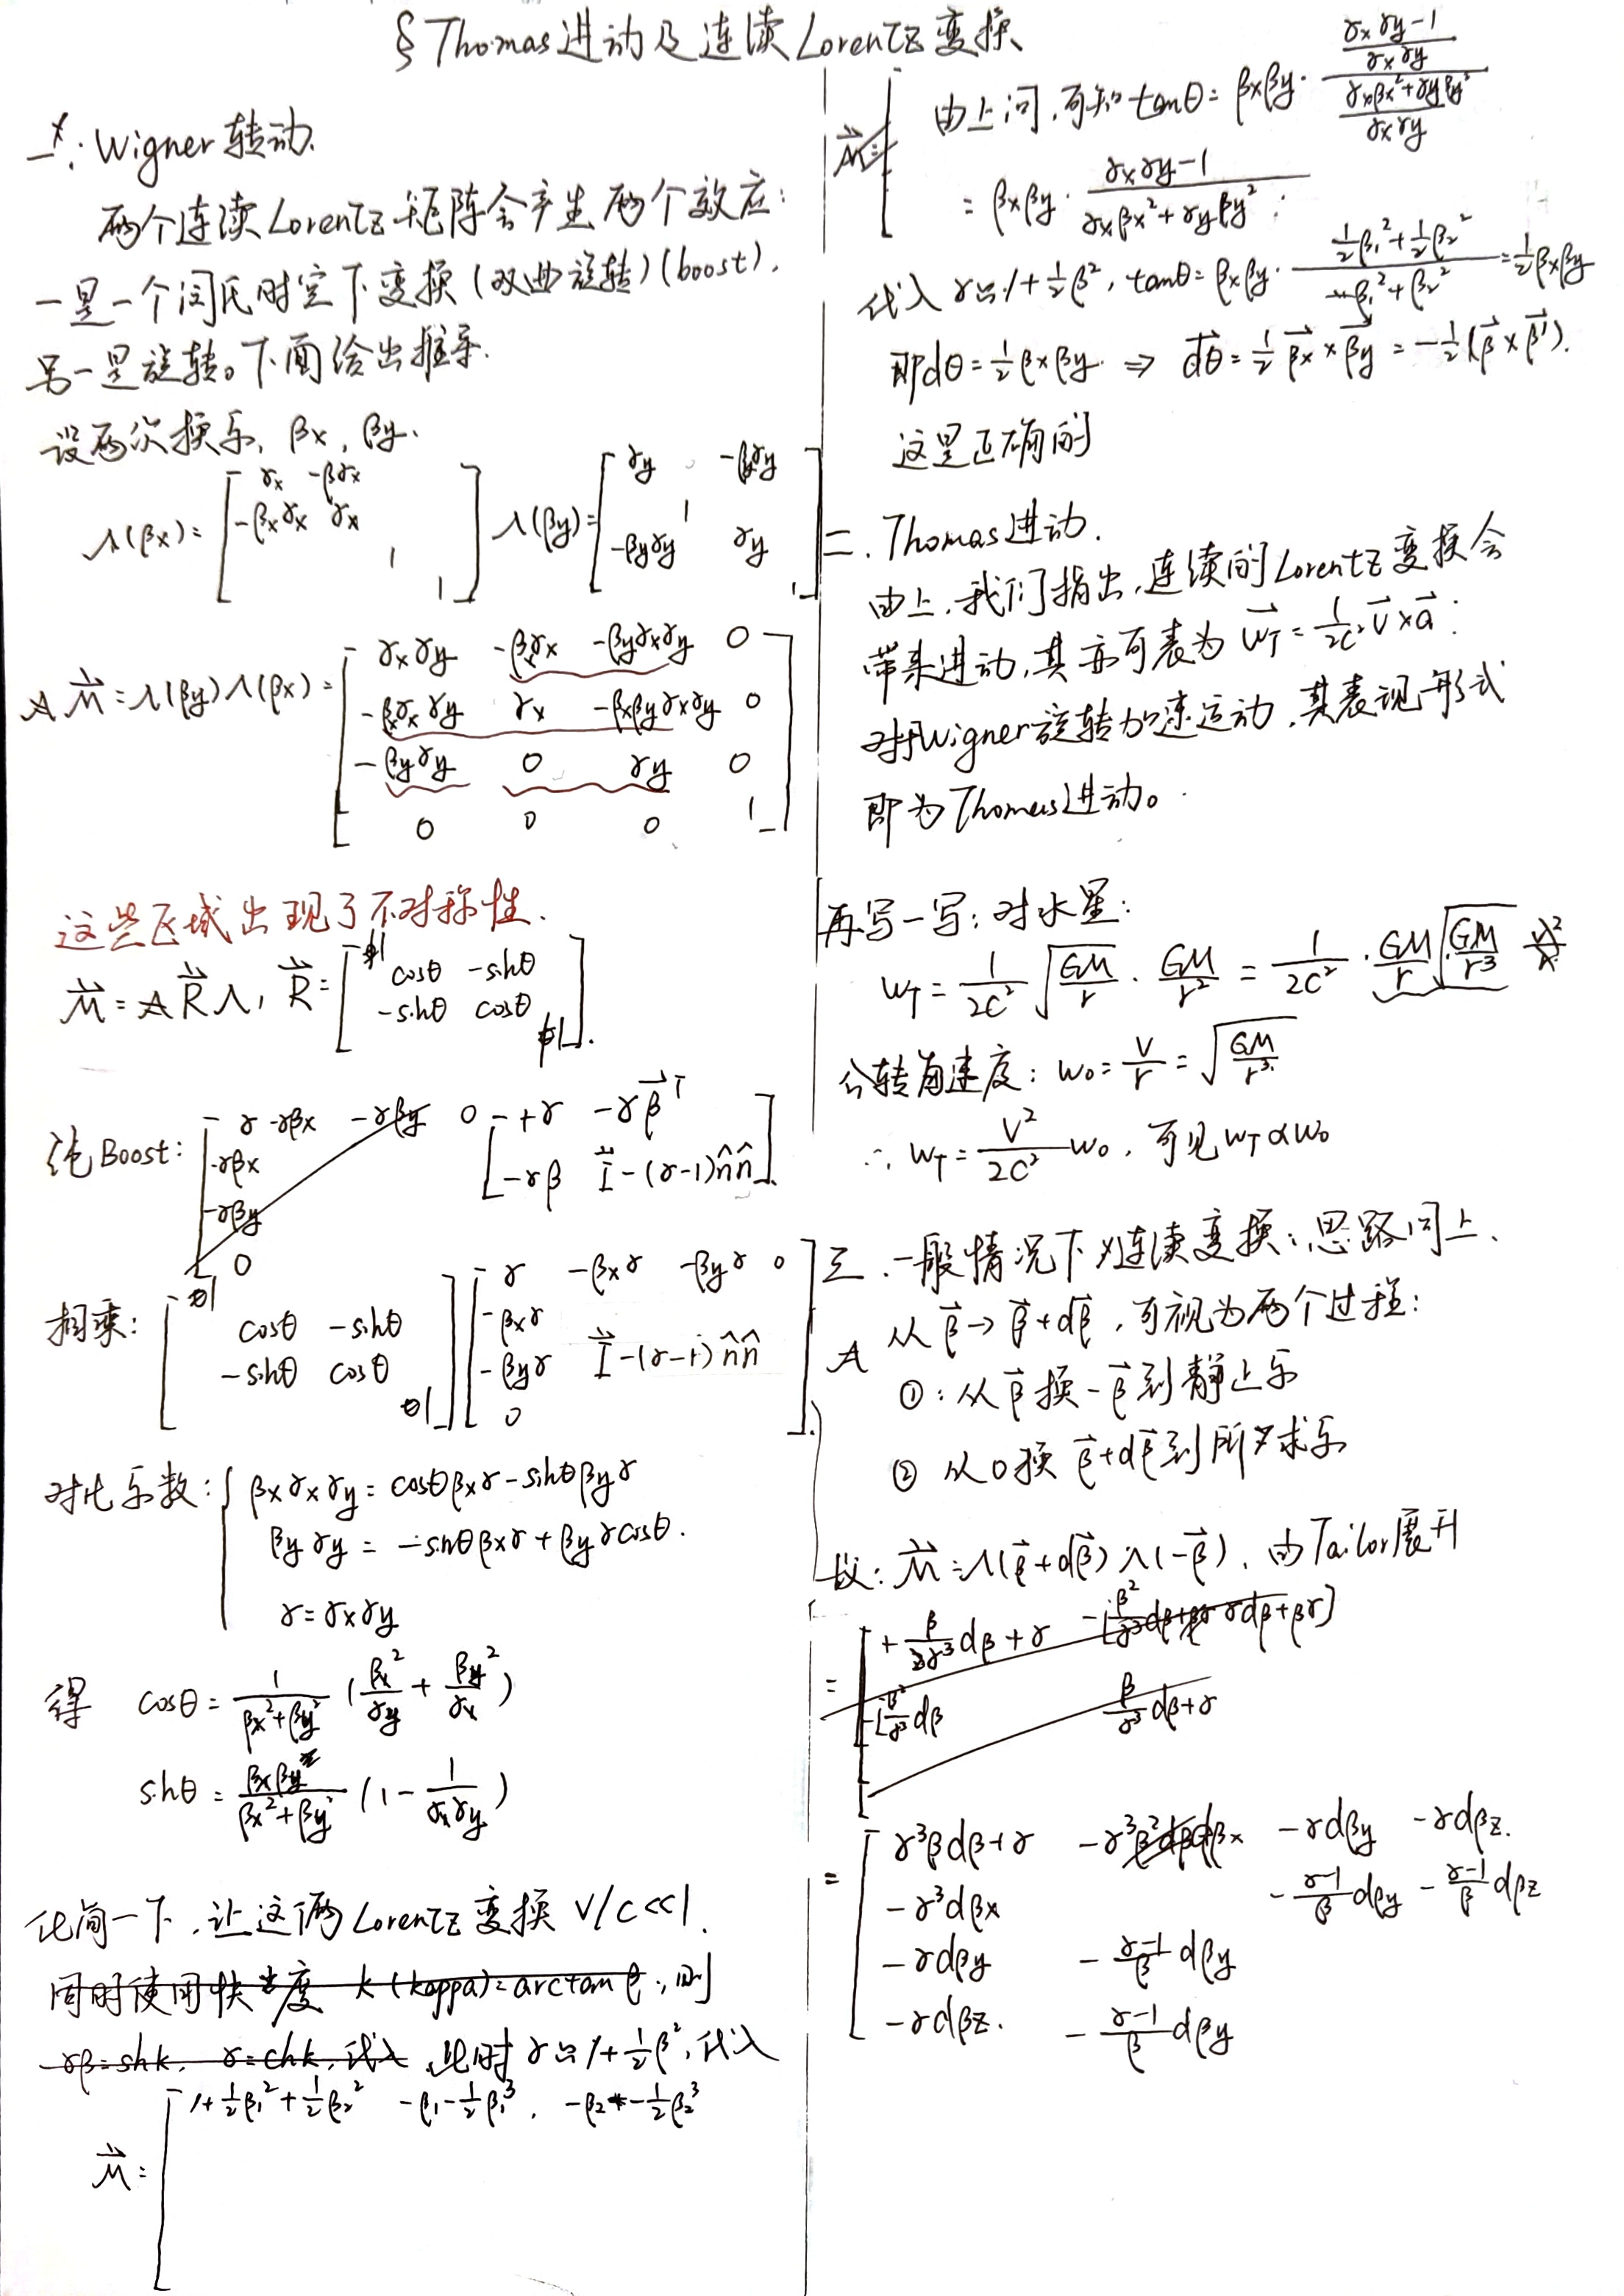 § Thomas进动及连续Lorentz变换
一: Wigner转动.
两个连续Lorentz矩阵会产生两个效应:
一是一个闵氏时空下变换(双曲旋转)(boost),
另一是旋转。下面给出推导.
设两次换系, βx, βy.
Λ(βx)= [ γx -βγx ; -βxγx γx ; 1 ; 1 ] Λ(βy)= [ γy -βγy ; 1 ; -βyγy γy ; 1 ]
M = Λ(βy)Λ(βx) = [ γxγy -βxγx -βyγxγy 0
-βxγxγy γx -βxβyγxγy 0
-βyγy 0 γy 0
0 0 0 1 ]
这些区域出现了不对称性.
M = RΛ, R = [ 1 ; cosθ -sinθ ; -sinθ cosθ ; 1 ].
纯Boost: [ γ -γβᵀ ; -γβ I-(γ-1)n̂n̂ ]
相乘: [ 1 ; cosθ -sinθ ; -sinθ cosθ ; 1 ] [ γ -βxγ -βyγ 0 ; -βxγ ; -βyγ I-(γ-1)n̂n̂ ; 0 ].
对比系数: { βxγxγy = cosθβxγ-sinθβyγ
βyγy = -sinθβxγ+βyγcosθ.
γ=γxγy
得 cosθ = 1/(βx²+βy²) (βx²/γy + βy²/γx)
sinθ = βxβy/(βx²+βy²) (1 - 1/(γxγy))
化简一下,让这俩Lorentz变换 v/c<<1.
同时使用快度 k(kappa)=arctanβ,则
γβ=shk, γ=chk,代入 此时 γ≈1+½β²,代入
M = [ 1+½β₁²+½β₂² -β₁-½β₁³, -β₂-½β₂³
由上问,可知 tanθ = βxβy · ((γxγy-1)/(γxγy))/((γxβx²+γyβy²)/(γxγy))
= βxβy · (γxγy-1)/(γxβx²+γyβy²) ;
代入 γ≈1+½β², tanθ=βxβy · (½β₁²+½β₂²)/(β₁²+β₂²) = ½βxβy
即dθ=½βxβy. ⇒ dθ⃗ = ½ β⃗x×β⃗y = -½(β⃗×β⃗').
这是正确的
二. Thomas进动.
由上,我们指出,连续的Lorentz变换会
带来进动,其亦可表为 ω⃗T = 1/(2c²) v⃗×a⃗ :
对于Wigner旋转加速运动,其表现形式
即为Thomas进动。
再写一写: 对水星:
ωT = 1/(2c²) √(GM/r) · GM/r² = 1/(2c²) · GM/r · √(GM/r³)
公转角速度: ω₀ = v/r = √(GM/r³)
∴ ωT = v²/(2c²) ω₀, 可见 ωT∝ω₀
三. 一般情况下连续变换: 思路同上.
从 β⃗→β⃗+dβ⃗, 可视为两个过程:
①: 从β⃗换-β⃗到静止系
② 从0换 β⃗+dβ⃗到所求系
故: M = Λ(β⃗+dβ⃗)Λ(-β⃗), 由Tailor展开
= [ γ³βdβ+γ -γ³dβx -γdβy -γdβz.
-γ³dβx -(γ-1)/β dβy -(γ-1)/β dβz
-γdβy -(γ-1)/β dβy
-γdβz. -(γ-1)/β dβy